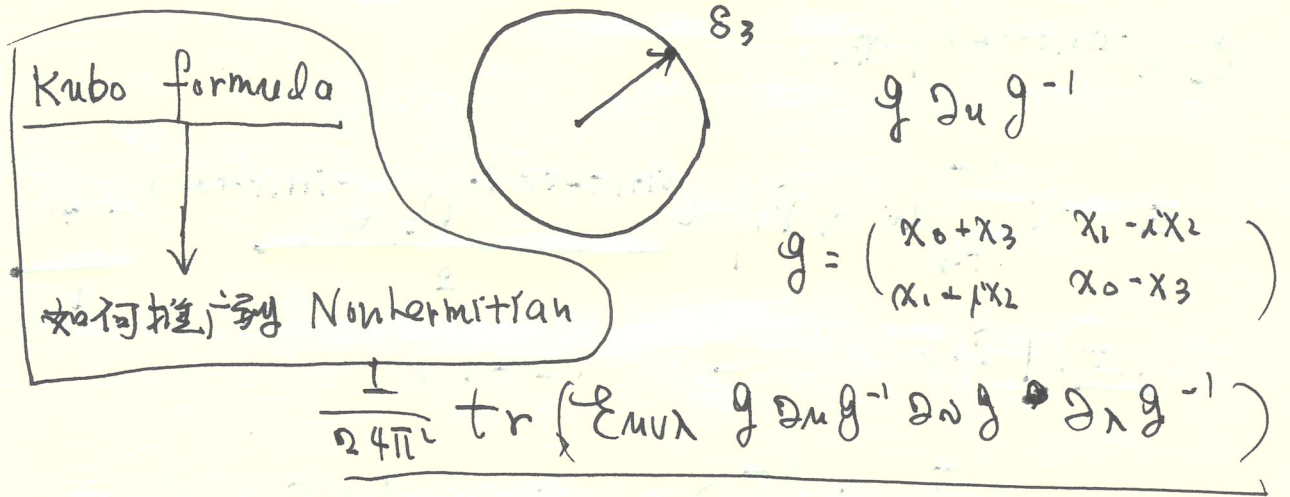 Kubo formula
如何推广到 Nonhermitian
S3
g ∂μ g^-1
g = ( x0+x3 x1-ix2
x1+ix2 x0-x3 )
1/24π² tr ( εμνλ g ∂μ g^-1 ∂ν g ∂λ g^-1 )